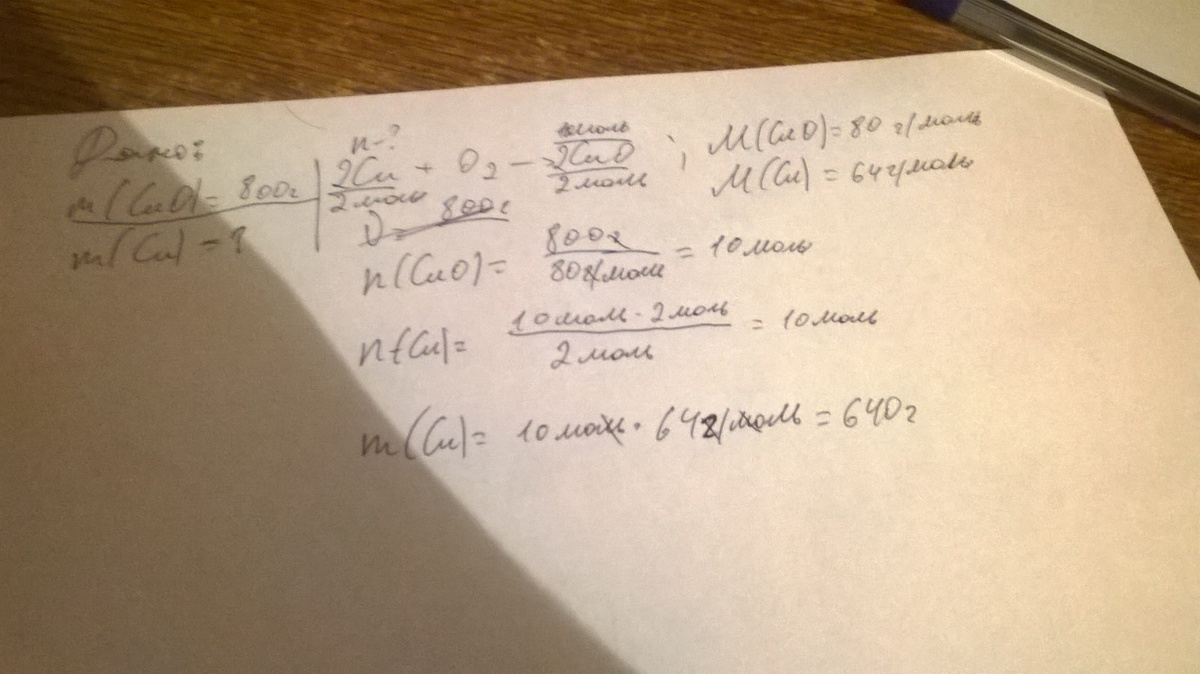 Дано:
m(CuO) = 800г
m(Cu) = ?
n-? 10моль
2Cu + O2 → 2CuO ; M(CuO) = 80 г/моль
2моль 2моль M(Cu) = 64г/моль
800г
n(CuO) = 800г / 80г/моль = 10моль
n(Cu) = 10моль · 2моль / 2моль = 10моль
m(Cu) = 10моль · 64г/моль = 640г